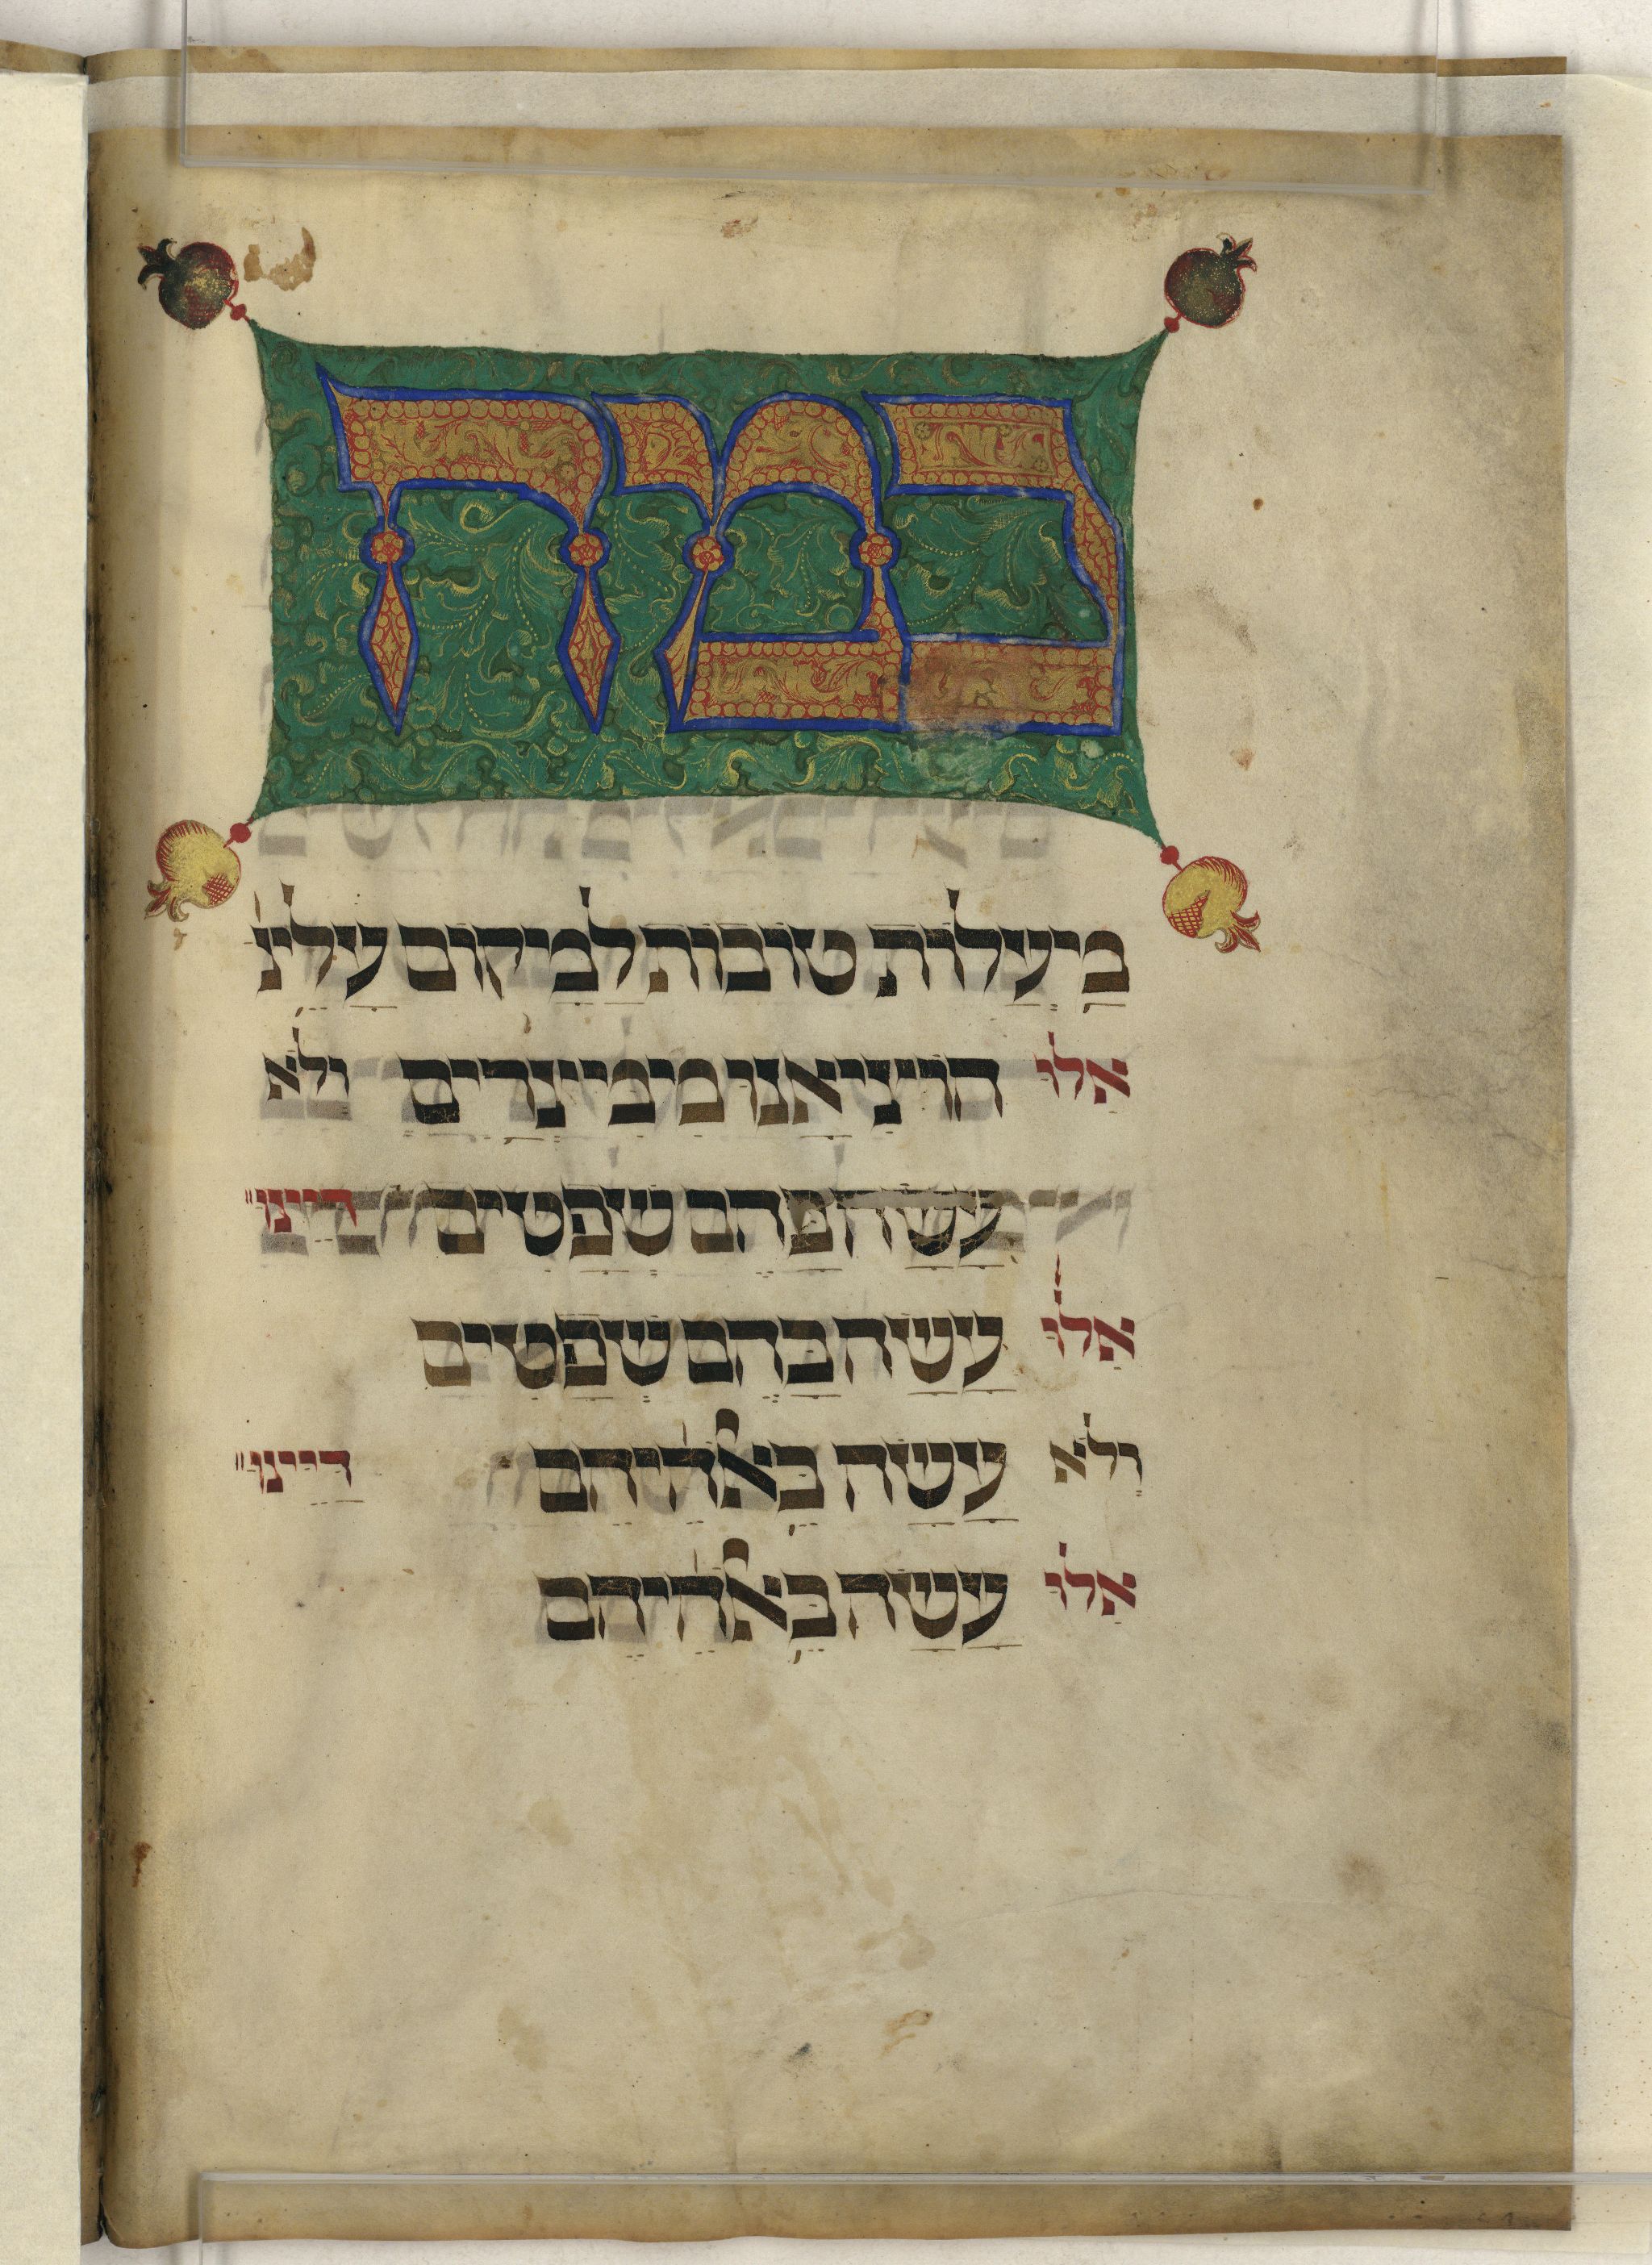 כמה
מיעלות טובות למיקום עלינו
אלו הויציאנו מימיינרים ולא
עשה בהם שפטים דיינו
אלו עשה בהם שפטים
ולא עשה באלהיהם דיינו
אלו עשה באלהיהם